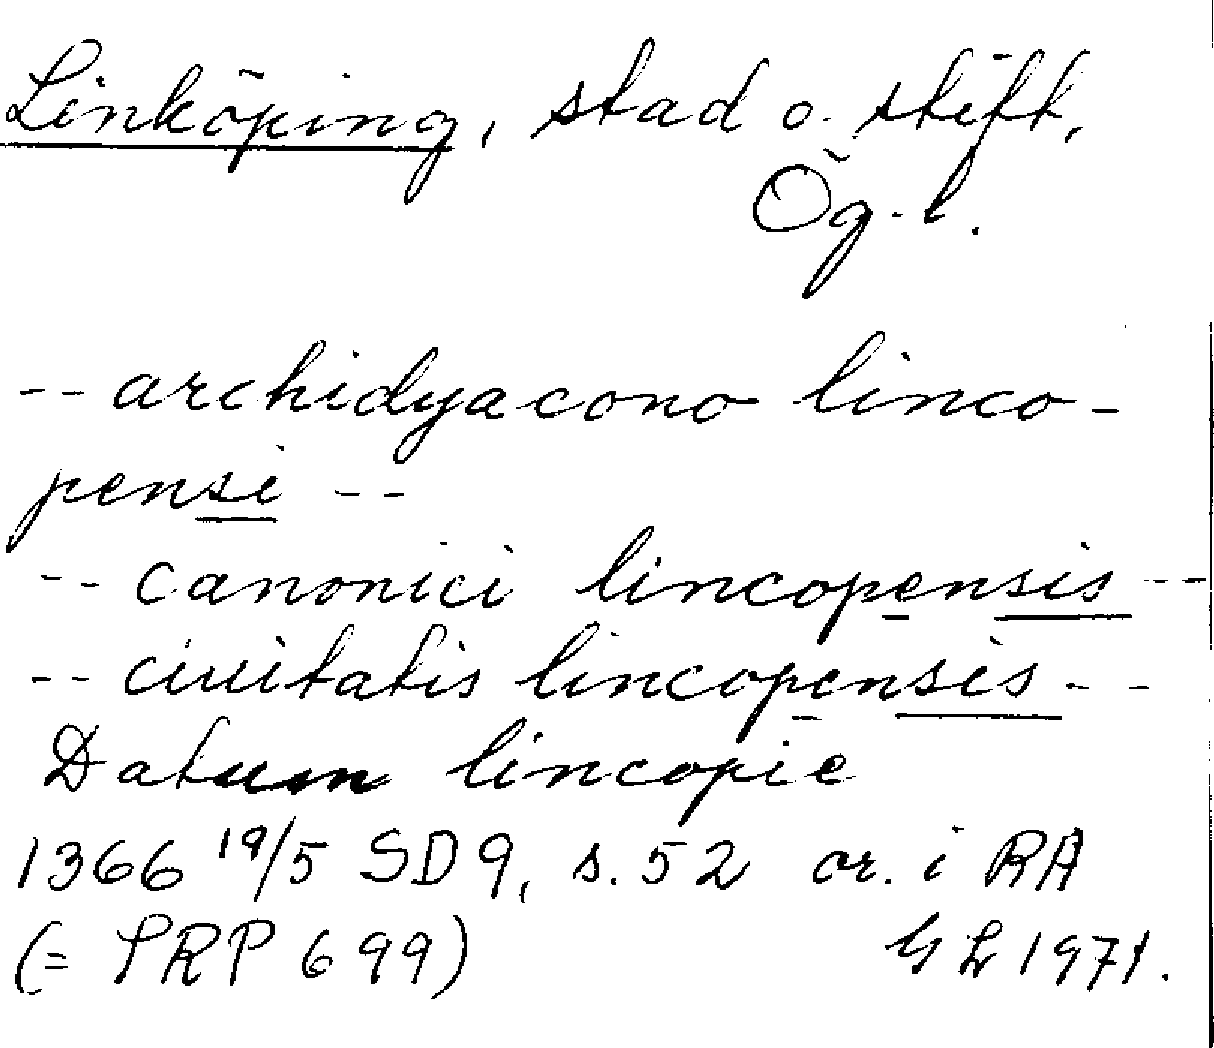 Linköping, stad o. stift,
Ög. l.
-- archidyacono linco-
pensi --
-- canonici lincopensis --
-- ciuitatis lincopensis --
Datum lincopie
1366 19/5 SD 9, s. 52 or. i RA
(= PRP 699) GL 1971.